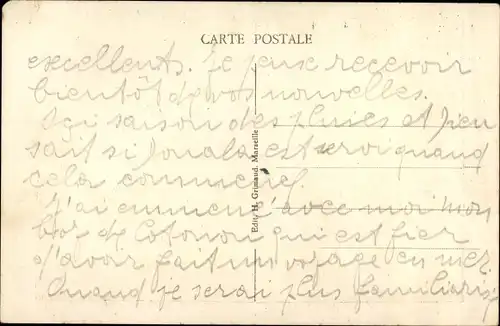 CARTE POSTALE
excellents. Je pense recevoir
bientôt de vos nouvelles.
Ici saison des pluies et Dieu
sait si Douala est servi quand
cela commence.
J'ai emmené avec moi mon
boy de Cotonou qui est fier
d'avoir fait un voyage en mer.
Quand je serai plus familiarisé
Edit. H. Grimaud, Marseille